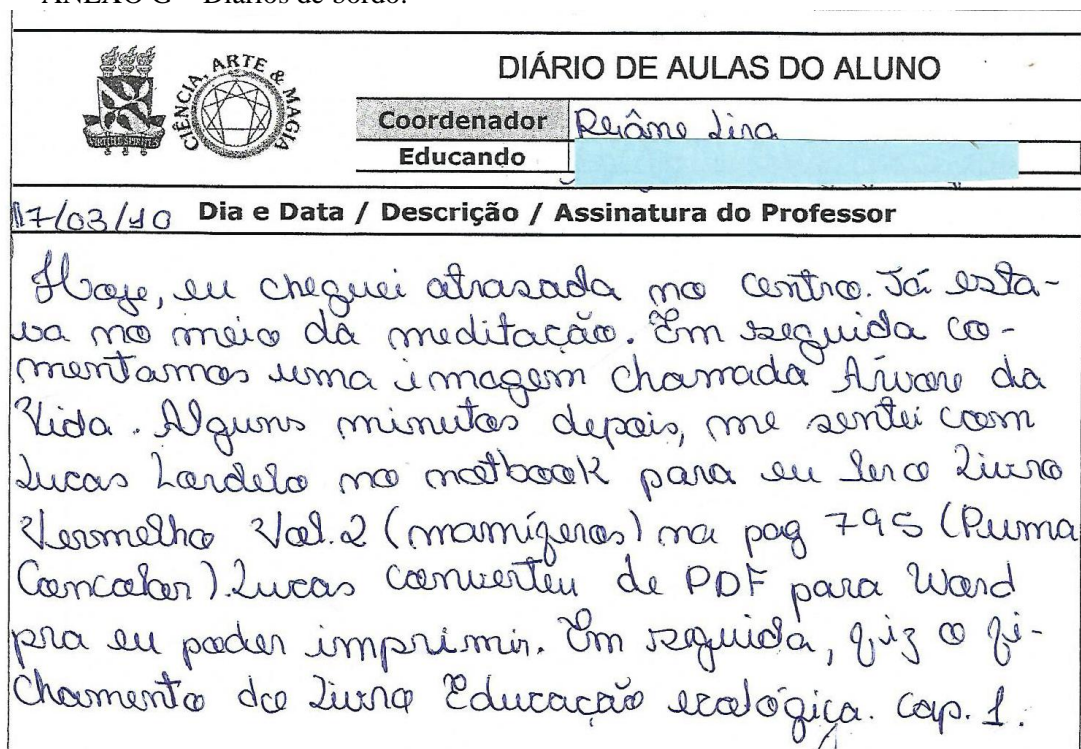 ANEXO G – Diários de bordo.
CIÊNCIA, ARTE & MAGIA
DIÁRIO DE AULAS DO ALUNO
Coordenador Rejâne Lira
Educando
17/03/10 Dia e Data / Descrição / Assinatura do Professor
Hoje, eu cheguei atrasada no centro. Já esta-
va no meio da meditação. Em seguida co-
mentamos uma imagem chamada Árvore da
Vida. Alguns minutos depois, me sentei com
Lucas Lardelo no notbook para eu ler o Livro
Vermelho Vol.2 (mamíferos) na pag 795 (Puma
Concolor). Lucas converteu de PDF para Word
pra eu poder imprimir. Em seguida, fiz o fi-
chamento do Livro Educação ecológica. cap. 1.